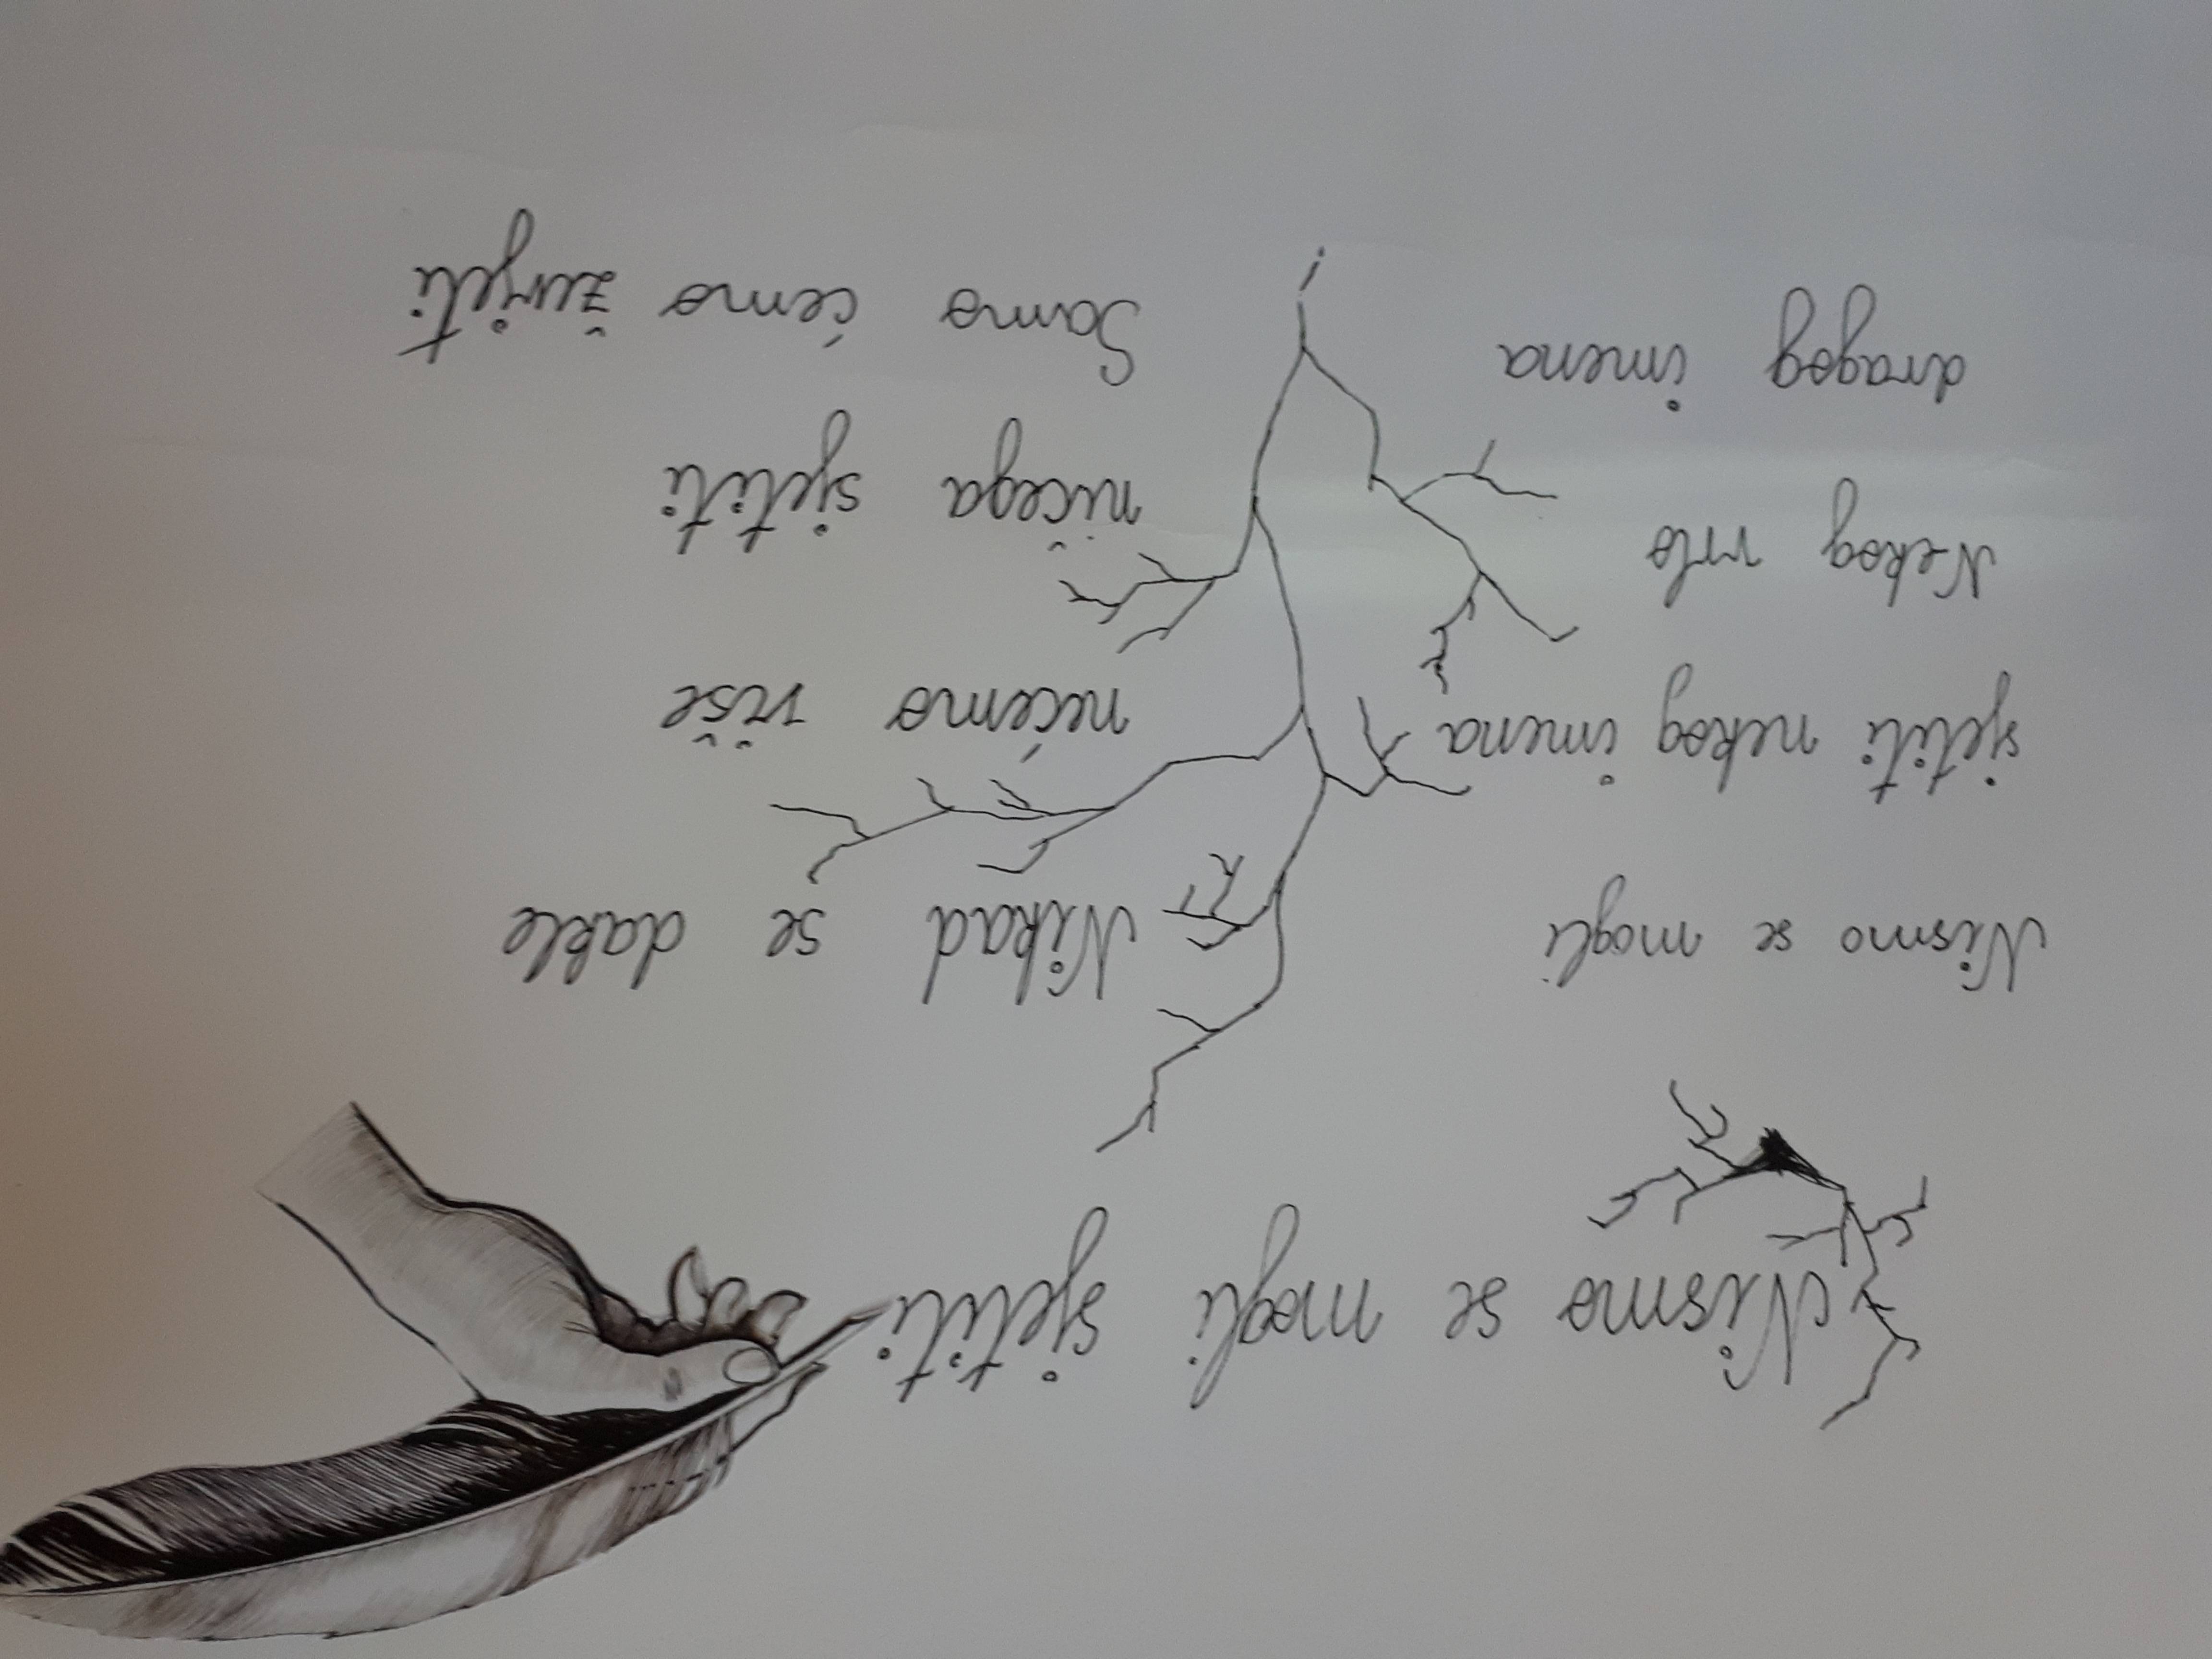 Nismo se mogli sjetiti
Nismo se mogli
sjetiti nekog imena
Nekog vrlo
dragog imena
Nikad se dakle
nećemo više
ničega sjetiti
Samo ćemo živjeti